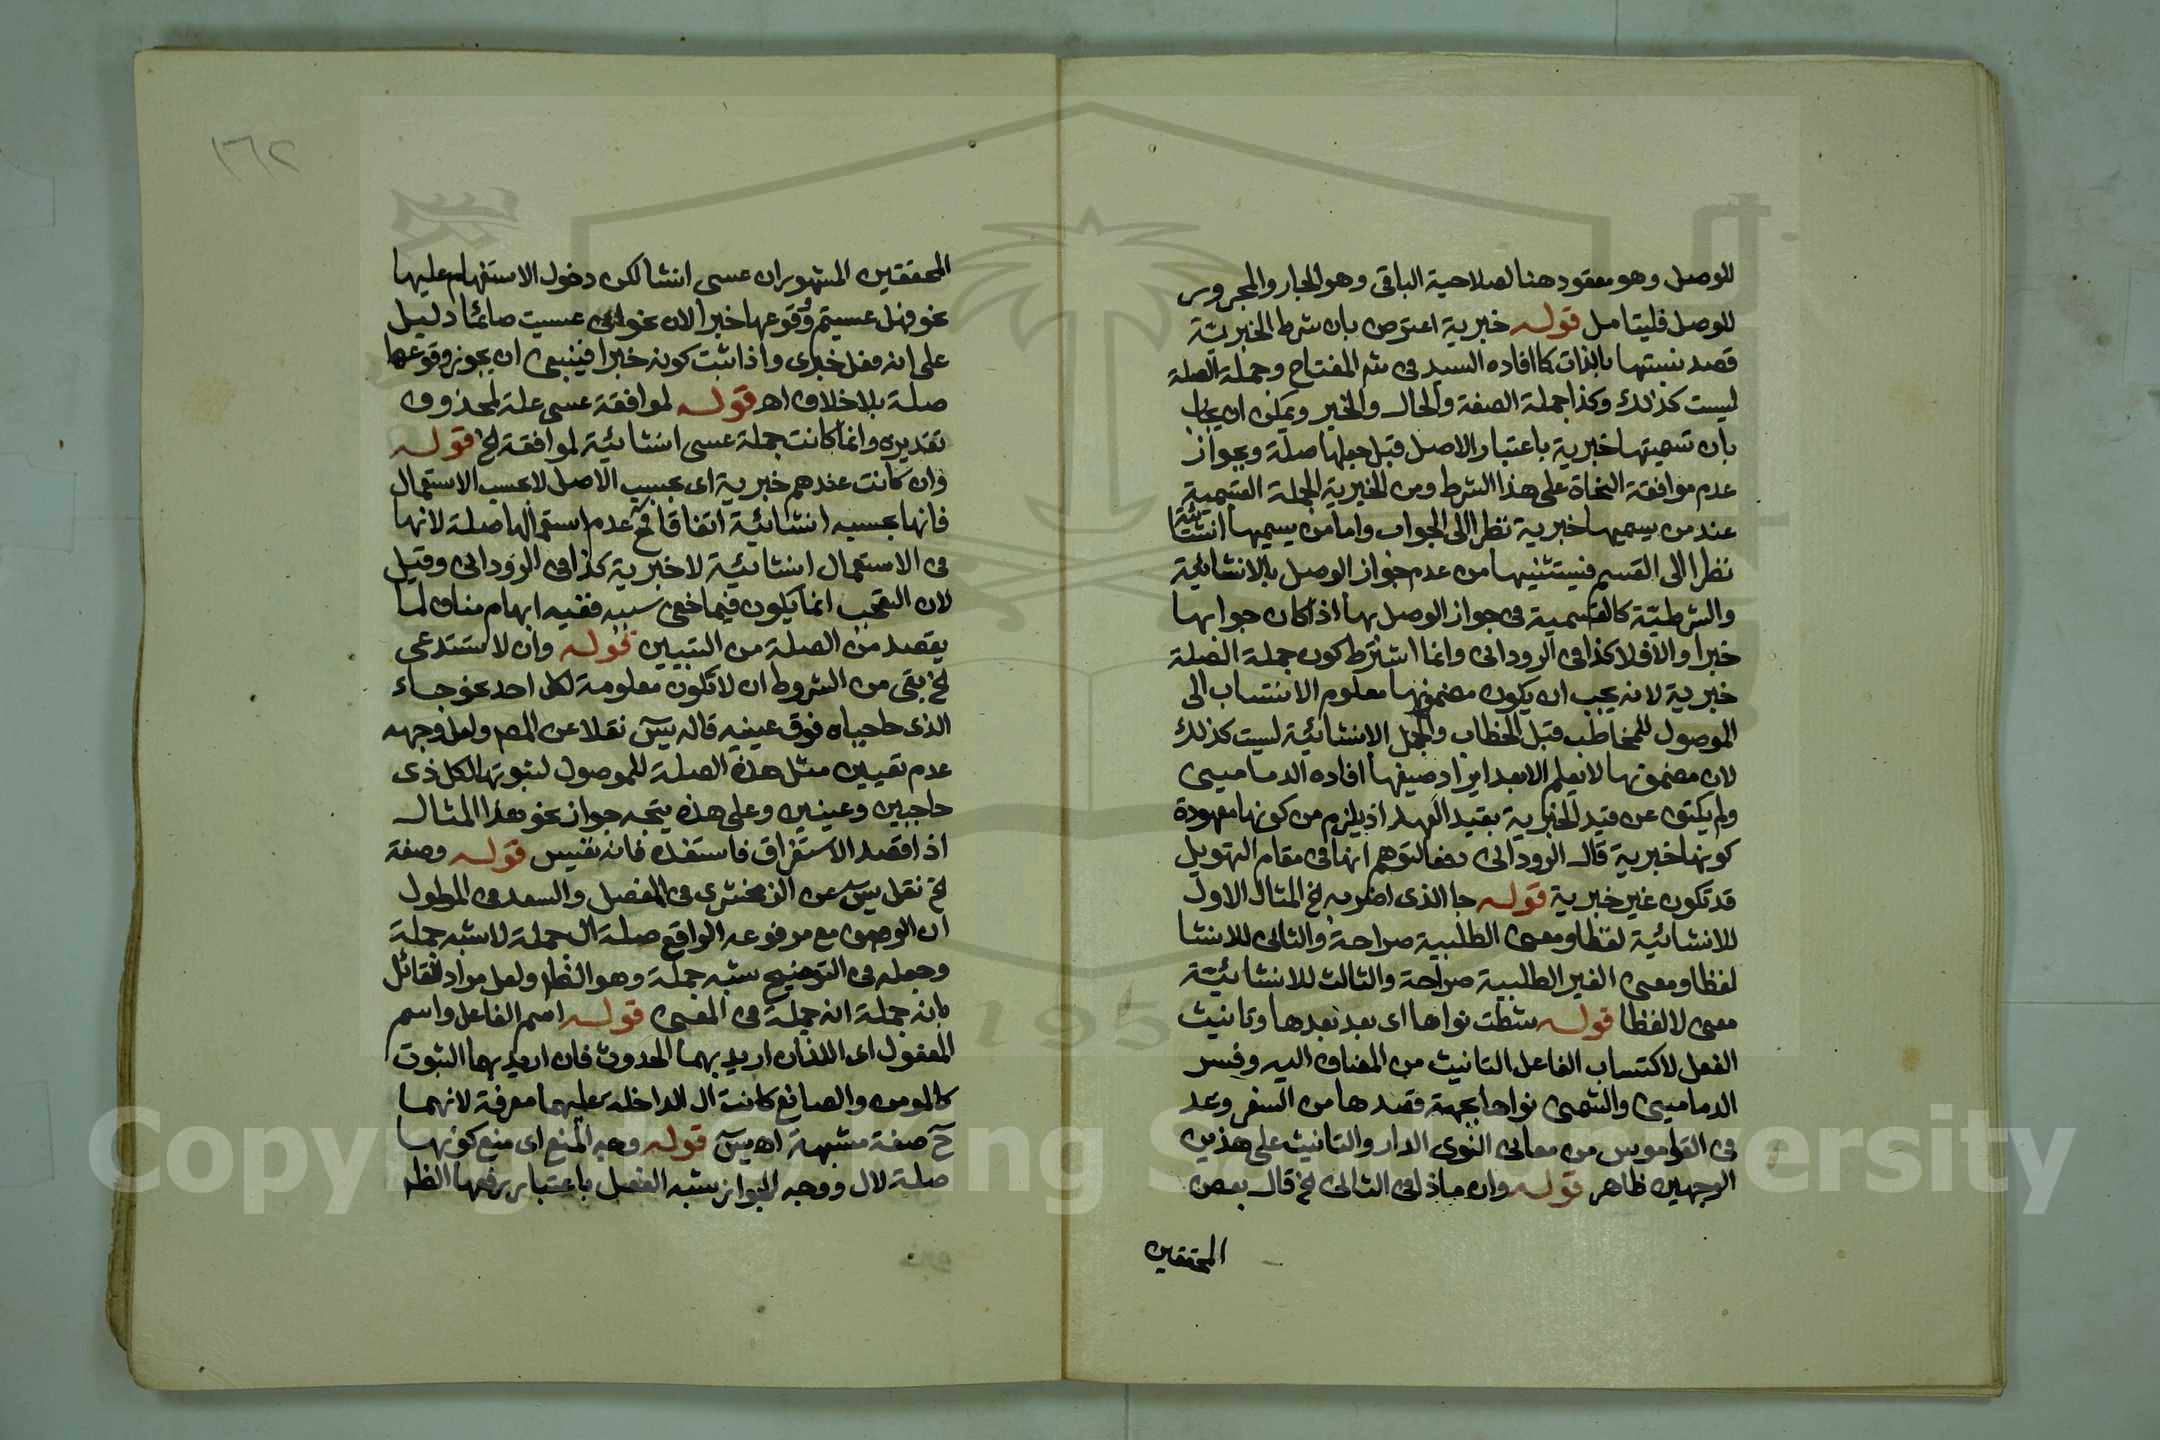 للوصل وهو مفقود هنا لصلاحية الباقى وهو الجار والمجرور
للوصل فليتامل قوله خبرية اعترض بان شرط الخبرية
قصد نسبتها بالذات كما افاده السيد فى شرح المفتاح وجملة الصلة
ليست كذلك وكذا جملة الصفة والحال والخبر ويمكن ان يجاب
بان تسميتها خبرية باعتبار الاصل قبل جعلها صلة وبجواز
عدم موافقة النحاة على هذا الشرط ومن الخبرية الجملة القسمية
عند من يسميها خبرية نظرا الى الجواب واما من يسميها انشائية
نظرا الى القسم فيستثنيها من عدم جواز الوصل بالانشائية
والشرطية كالقسمية فى جواز الوصل بها اذا كان جوابها
خبرا والا فلا كذا فى الرودانى وانما اشترط كون جملة الصلة
خبرية لانه يجب ان يكون مضمونها معلوم الانتساب الى
الموصول للمخاطب قبل الخطاب والجمل الانشائية ليست كذلك
لان مضمونها لا يعلم الا بعد ايراد صيغها افاده الدمامينى
ولم يكتف عن قيد الخبرية بقيد العهد اذ يلزم من كونها معهودة
كونها خبرية قال الرودانى دفعا لتوهم انها فى مقام التهويل
قد تكون غير خبرية قوله جا الذى اضربه لخ المثال الاول
للانشائية لفظا ومعنى الطلبية صراحة والثانى للانشا
لفظا ومعنى الغير الطلبية صراحة والثالث للانشائية
معنى لا لفظا قوله شطت نواها اى بعد بعدها وتانيث
الفعل لاكتساب الفاعل التانيث من المضاف اليه وفسر
الدمامينى والشمنى نواها بجهة قصدها من السفر وعد
فى القاموس من معانى النوى الدار والتانيث على هذين
الوجهين ظاهر قوله وان ماذا فى التالى لخ قال بعض
المحققين
١٦٢
المحققين المشهور ان عسى انشا لكن دخول الاستفهام عليها
نحو فهل عسيتم وقوعها خبرا لان نحو انى عسيت صائما دليل
على انه فعل خبرى واذا ثبت كونه خبرا فينبغى ان يجوز وقوعها
صلة بلا خلاف اه قوله لموافقة عسى علة لمحذوف
تقديره وانما كانت جملة عسى انشائية لموافقة لخ قوله
وان كانت عندهم خبرية اى بحسب الاصل لا بحسب الاستعمال
فانها بحسبه انشائية اتفاقا فح عدم استعمالها صلة لانها
فى الاستعمال انشائية لا خبرية كذا فى الرودانى وقيل
لان التعجب انما يكون فيما خفى سببه ففيه ابهام مناف لما
يقصد من الصلة من التبيين قوله وان لا تستدعى
لخ بقى من الشروط ان لا تكون معلومة لكل احد نحو جاء
الذى حاجباه فوق عينيه قاله يس نقلا عن المص ولعل وجهه
عدم تعيين مثل هذه الصلة للموصول لثبوتها لكل ذى
حاجبين وعينين وعلى هذه يتجه جواز نحو هذا المثال
اذا قصد الاستغراق فاستفده فانه نفيس قوله وصفة
لخ نقل يس عن الزمخشرى فى المفصل والسعد فى المطول
ان الوصف مع مرفوعه الواقع صلة ال جملة لا شبه جملة
وجعله فى التوضيح شبه جملة وهو الظ ولعل مراد القائل
بانه جملة انه جملة فى المعنى قوله اسم الفاعل واسم
المفعول اى اللذان اريد بهما الحدوث فان اريد بهما الثبوت
كالمومن والصانع كانت ال الداخلة عليهما معرفة لانهما
ح صفة مشبهة اه يس قوله وجه المنع اى منع كونها
صلة لال ووجه الجواز شبه الفعل باعتبار رفعها الظ
Copyright © King Saud University
195